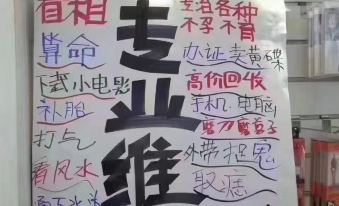 看相
算命
下载小电影
补胎
打气
看风水
专业维
专治各种
不孕不育
办证卖黄碟
高价回收
手机·电脑
磨刀磨剪子
外带捉鬼
取痣